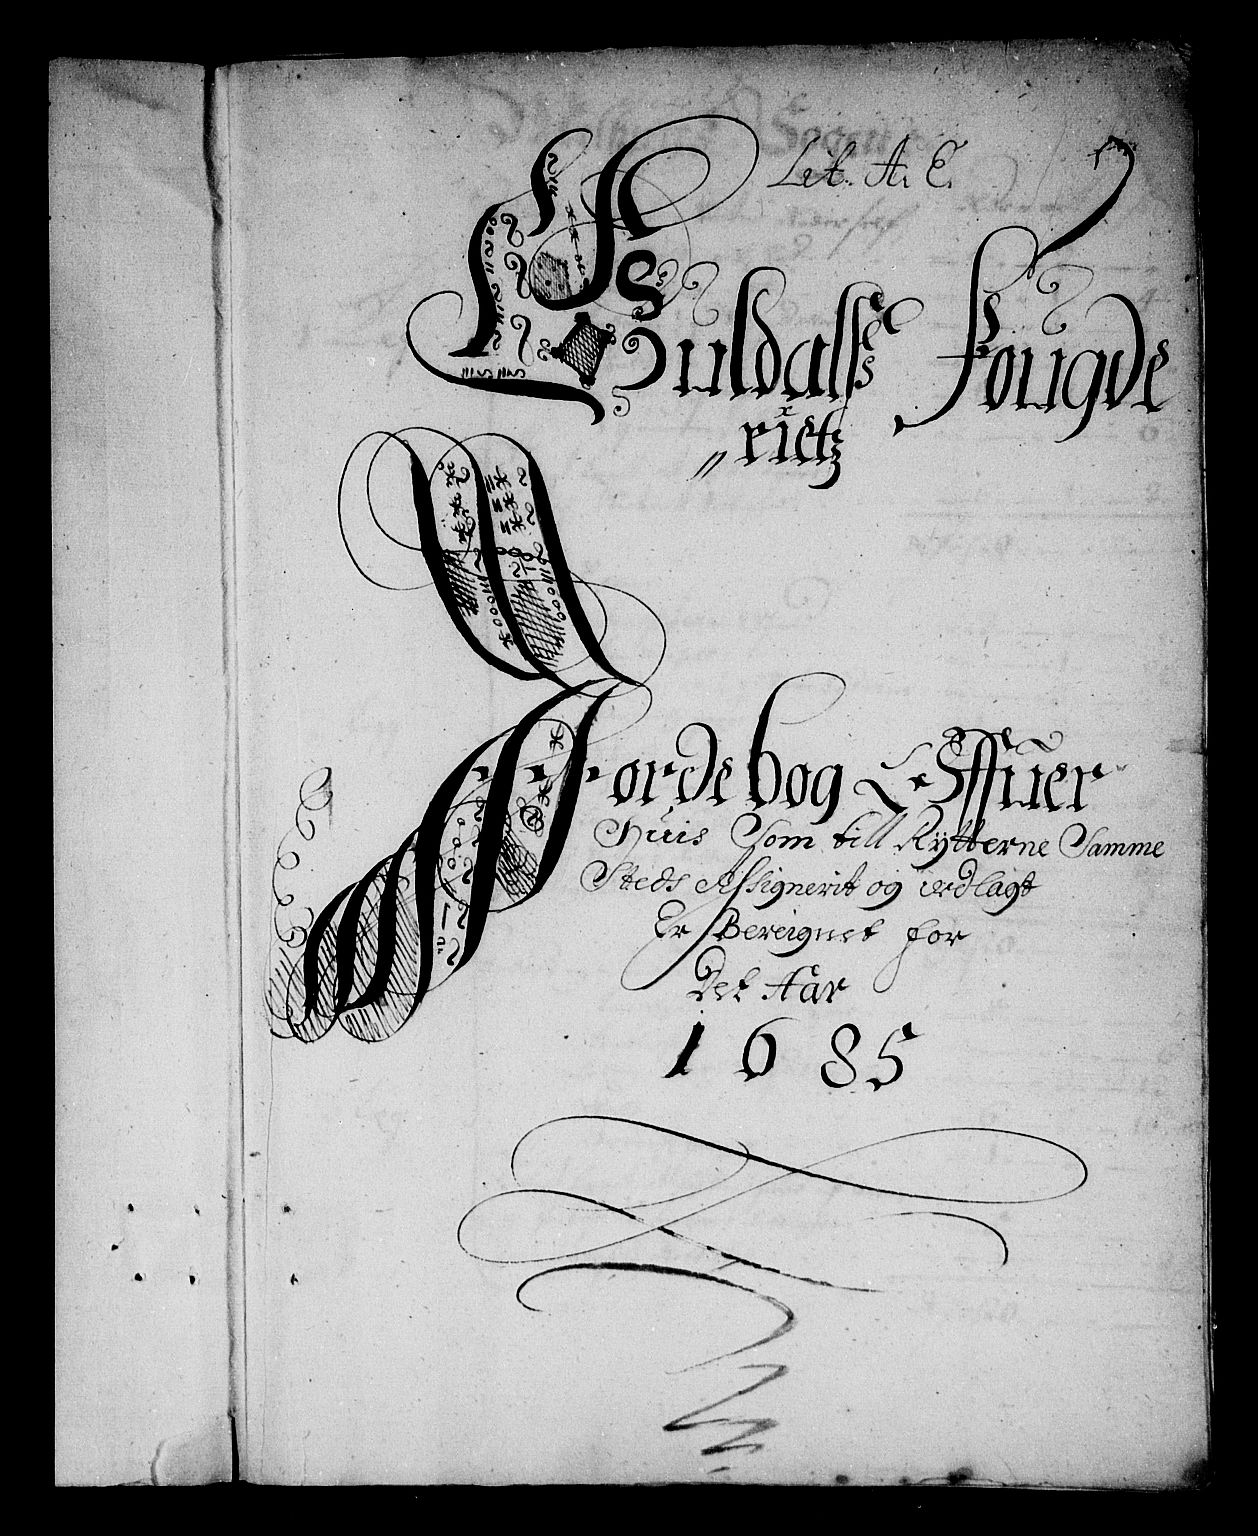 Lit. A. E.
Guldals Fougde
rietz
Jordebog Offuer
Huis Som till Rÿtterne Samme
Steds Assignerit og udlagt
Er Bereignet for
Det Aar
1685